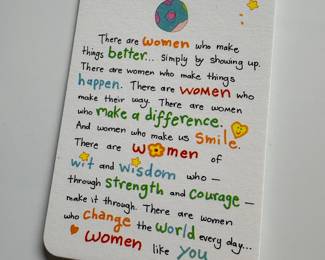 There are women who make
things better... Simply by showing up.
There are women who make things
happen. There are women who
make their way. There are women
who make a difference.
And women who make us Smile.
There are women of
wit and wisdom who —
through strength and courage —
make it through. There are women
who change the world every day...
women like you